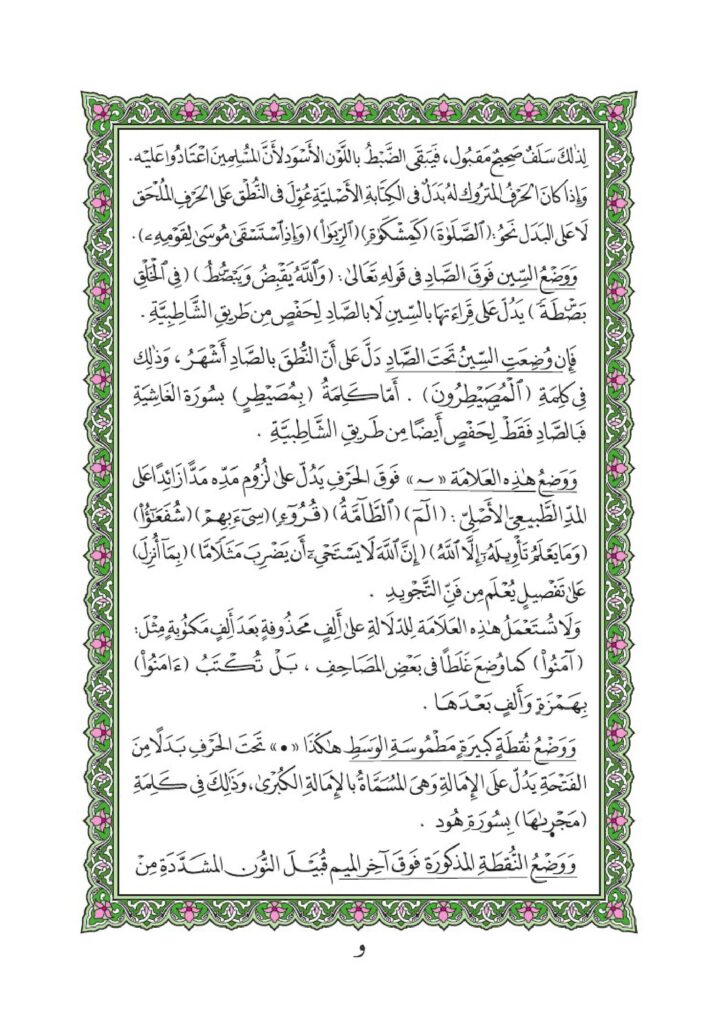 لِذَٰلِكَ سَلَفٌ صَحِيحٌ مَقْبُول، فَيَبْقَى الضَّبْطُ بِاللَّوْنِ الأَسْوَدِ لأَنَّ المُسْلِمِينَ اعْتَادُوا عَلَيْه.
وَإِذَا كَانَ الحَرْفُ المَتْرُوكُ لَهُ بَدَلٌ فِى الكِتَابَةِ الأَصْلِيَّةِ عُوِّلَ فِى النُّطْقِ عَلَى الحَرْفِ المُلْحَقِ
لَا عَلَى البَدَلِ نَحْوُ: (ٱلصَّلَوٰةَ) (كَمِشْكَوٰةٍ) (ٱلرِّبَوٰا۟) (وَإِذِ ٱسْتَسْقَىٰ مُوسَىٰ لِقَوْمِهِۦ).
وَوَضْعُ السِّينِ فَوْقَ الصَّادِ فِى قَوْلِهِ تَعَالَىٰ: (وَٱللَّهُ يَقْبِضُ وَيَبْصُۜطُ) (فِى ٱلْخَلْقِ
بَصْۜطَةً) يَدُلُّ عَلَى قِرَاءَتِهَا بِالسِّينِ لَا بِالصَّادِ لِحَفْصٍ مِن طَرِيقِ الشَّاطِبِيَّةِ.
فَإِن وُضِعَتِ السِّينُ تَحْتَ الصَّادِ دَلَّ عَلَى أَنَّ النُّطْقَ بِالصَّادِ أَشْهَرُ، وَذَٰلِكَ
فِى كَلِمَةِ (ٱلْمُصَۣيْطِرُونَ). أَمَّا كَلِمَةُ (بِمُصَيْطِرٍ) بِسُورَةِ الغَاشِيَةِ
فَبِالصَّادِ فَقَطْ لِحَفْصٍ أَيْضًا مِن طَرِيقِ الشَّاطِبِيَّةِ.
وَوَضْعُ هَٰذِهِ العَلَامَة «ـٓ» فَوْقَ الحَرْفِ يَدُلُّ عَلَىٰ لُزُومِ مَدِّهِ مَدًّا زَائِدًا عَلَى
المَدِّ الطَّبِيعِىِّ الأَصْلِىِّ: (الٓمٓ) (ٱلطَّآمَّةُ) (قُرُوٓءٍ) (سِىٓءَ بِهِمْ) (شُفَعَٰٓؤُا۟)
(وَمَا يَعْلَمُ تَأْوِيلَهُۥٓ إِلَّا ٱللَّهُ) (إِنَّ ٱللَّهَ لَا يَسْتَحْىِۦٓ أَن يَضْرِبَ مَثَلًا مَّا) (بِمَآ أُنزِلَ)
عَلَىٰ تَفْصِيلٍ يُعْلَم مِن فَنِّ التَّجْوِيدِ.
وَلَا تُسْتَعْمَلُ هَٰذِهِ العَلَامَة لِلدِّلَالَةِ عَلَىٰ أَلِفٍ مَحْذُوفَةٍ بَعْدَ أَلِفٍ مَكْتُوبَةٍ مِثْلَ:
(آمَنُوا۟) كَمَا وُضِعَ غَلَطًا فِى بَعْضِ المَصَاحِفِ، بَلْ تُكْتَبُ (ءَامَنُوا۟)
بِهَمْزَةٍ وَأَلِفٍ بَعْدَهَا.
وَوَضْعُ نُقْطَةٍ كَبِيرَةٍ مَطْمُوسَةِ الوَسَطِ هَٰكَذَا «•» تَحْتَ الحَرْفِ بَدَلًا مِنَ
الفَتْحَةِ يَدُلُّ عَلَى الإِمَالَةِ وَهِىَ المُسَمَّاةُ بِالإِمَالَةِ الكُبْرَىٰ، وَذَٰلِكَ فِى كَلِمَةِ
(مَجْر۪ىٰهَا) بِسُورَةِ هُود.
وَوَضْعُ النُّقْطَةِ المَذْكُورَةِ فَوْقَ آخِرِ المِيم قُبَيْلَ النُّونِ المُشَدَّدَةِ مِنْ
و